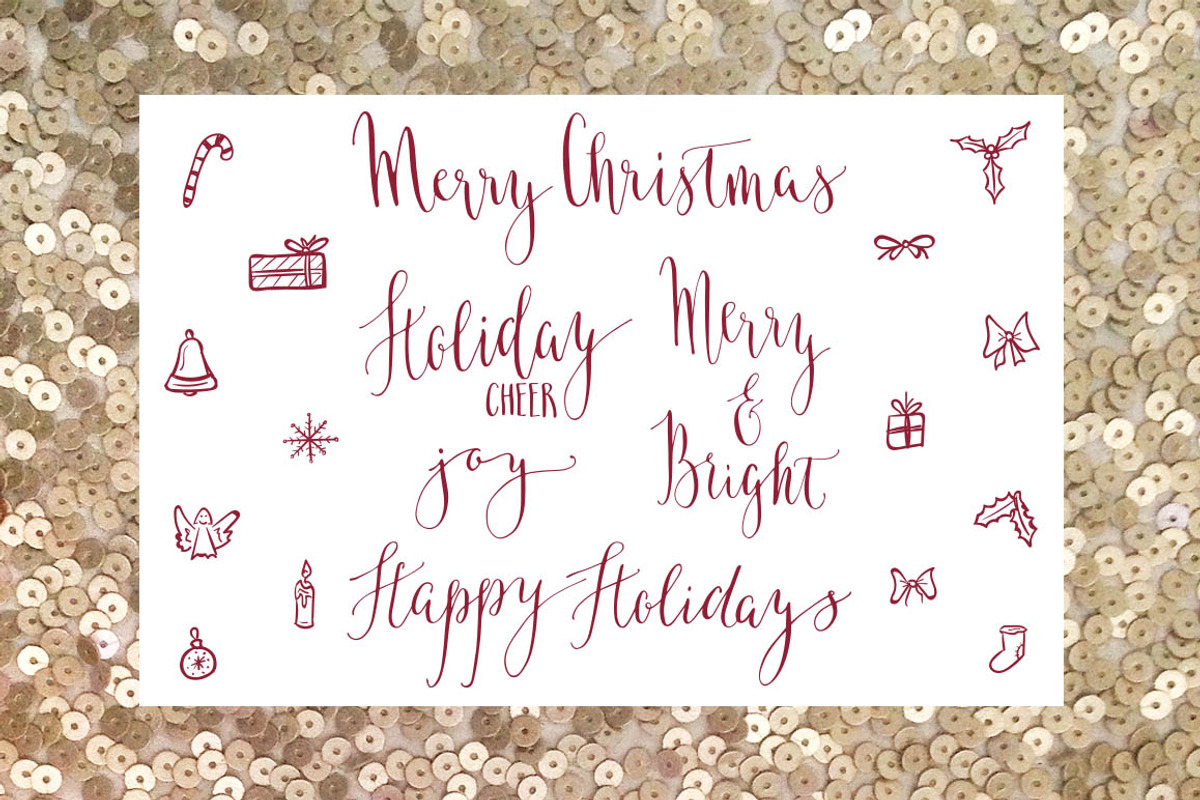 Merry Christmas
Holiday
CHEER
Merry
&
Bright
joy
Happy Holidays